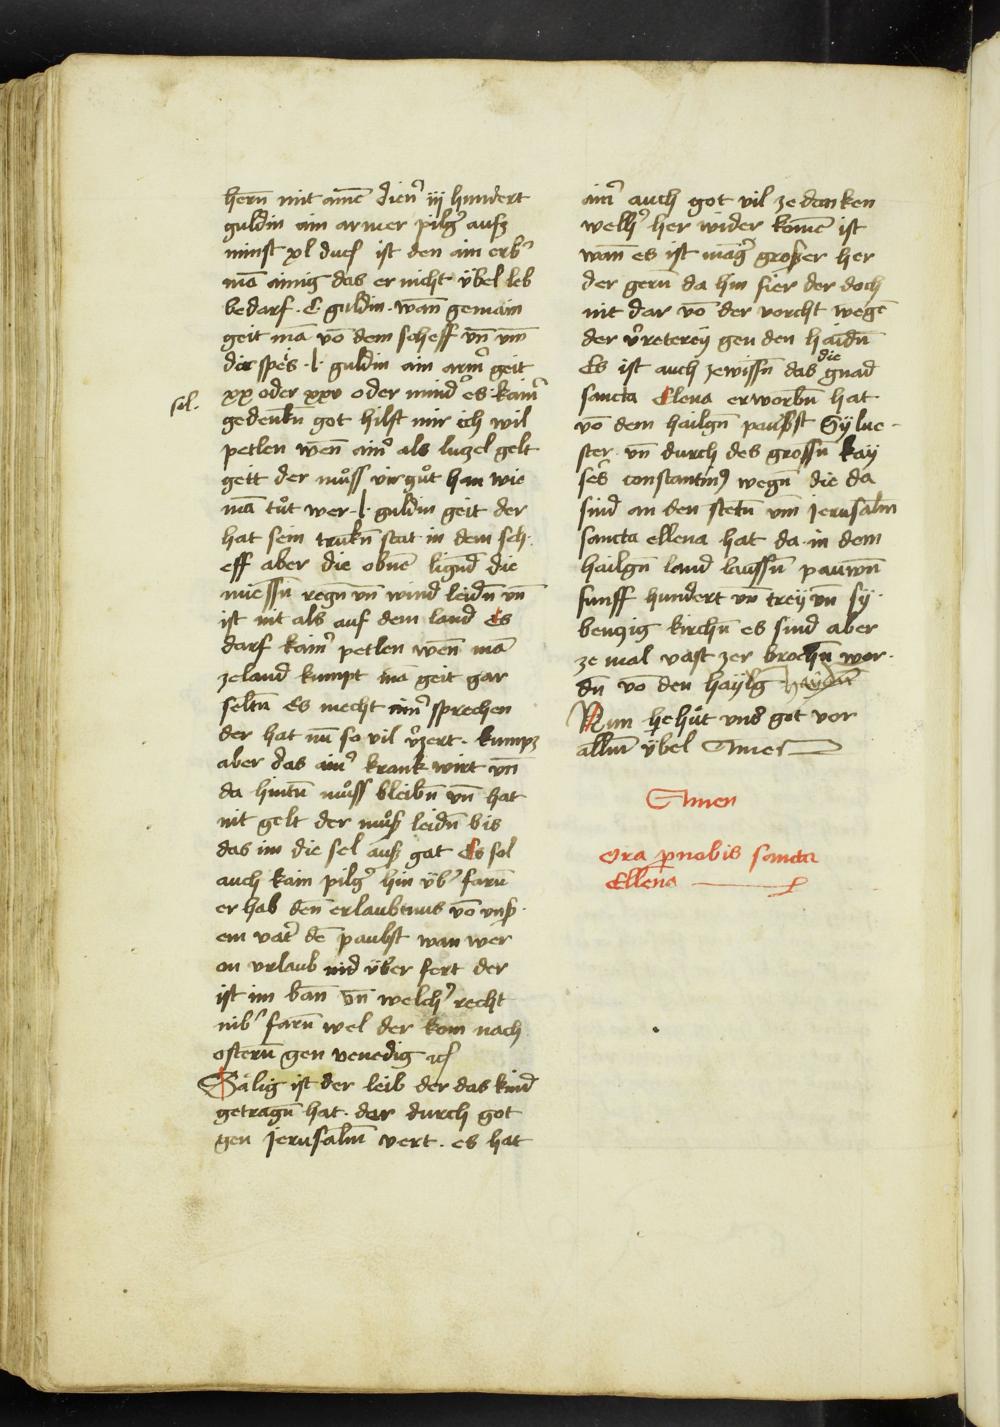 hern̄ mit aīne dien᷑ iij hundert
guldin ain armer pilg᷑ aufz
minst xl duc ist den ain erb᷑
mā ainig das er nicht v̈bel leb
bedarf · C · guldin · wan̄ gemain
geit mā vō dem scheff vn̄ vm̄
die speis · l · guldin ain arm᷑ geit
xx oder xxv oder mind᷑ es · kain᷑
sol.
gedenkn̄ got hilft mir ich wil
petlen wen̄ ain᷑ als luzel gelt
geit der muͦss virguͦt han wie
mā tuͦt wer · l · guldin geit der
hat sein trukn̄ stat in dem sch
eff aber die obnē lignd̄ die
miessn̄ regn̄ vn̄ wind leidn̄ vn̄
ist nit als auf dem land Es
darf kain᷑ petlen wen̄ mā
zeland kumpt mā geit gar
seltn̄ Es mecht ain᷑ sprechen
der hat nū so vil v᷑zert · kumpz
aber das ain᷑ krank wirt vn̄
da hintn̄ muͦss bleibn̄ vn̄ hat
nit gelt der muͦß leidn̄ bis
das im die sel auß gat Es sol
auch kain pilg᷑ hin v̈b᷑ farn̄
er hab den̄ erlaubtnus vō vnß
em vat᷑ dē paubst wan wer
on vrlaub nid v̈ber fert der
ist im ban̄ vn̄ welch᷑ recht
v̈b᷑ farn̄ wel der kom nach
ostern̄ gen venedig etc
Sälig ist der leib der das kind
getragn̄ hat · dar durch got
gen Jerusalm̄ vert · es hat
ain᷑ auch got vil ze danken
welh᷑ her wider komē ist
wan̄ es ist mäg᷑ großer her
der gern̄ da hin fier der doch
nit dar vō der vorcht wegē
der v᷑reterey gen den haidn̄
Es ist auch zewissn̄ das die gnad
sancta Elena erworbn̄ hat
vō dem hailgn̄ paubst Sylue-
ster vn̄ durch des grossn̄ kay
sers constantin9 wegn̄ die da
sind an den stetn̄ vm̄ Jerusalm̄
sancta ellena hat da in dem
hailgn̄ land laussn̄ pauwn̄
funff hundert vn̄ trey vn̄ sy
benzig kirchn̄ es sind aber
ze mal vast zer brochn̄ wor
dn̄ vō den haylg haydn̄
Nun behuͤt vns got vor
allm̄ v̈bel Amen
Amen
Ora pnobis sancta
Ellena